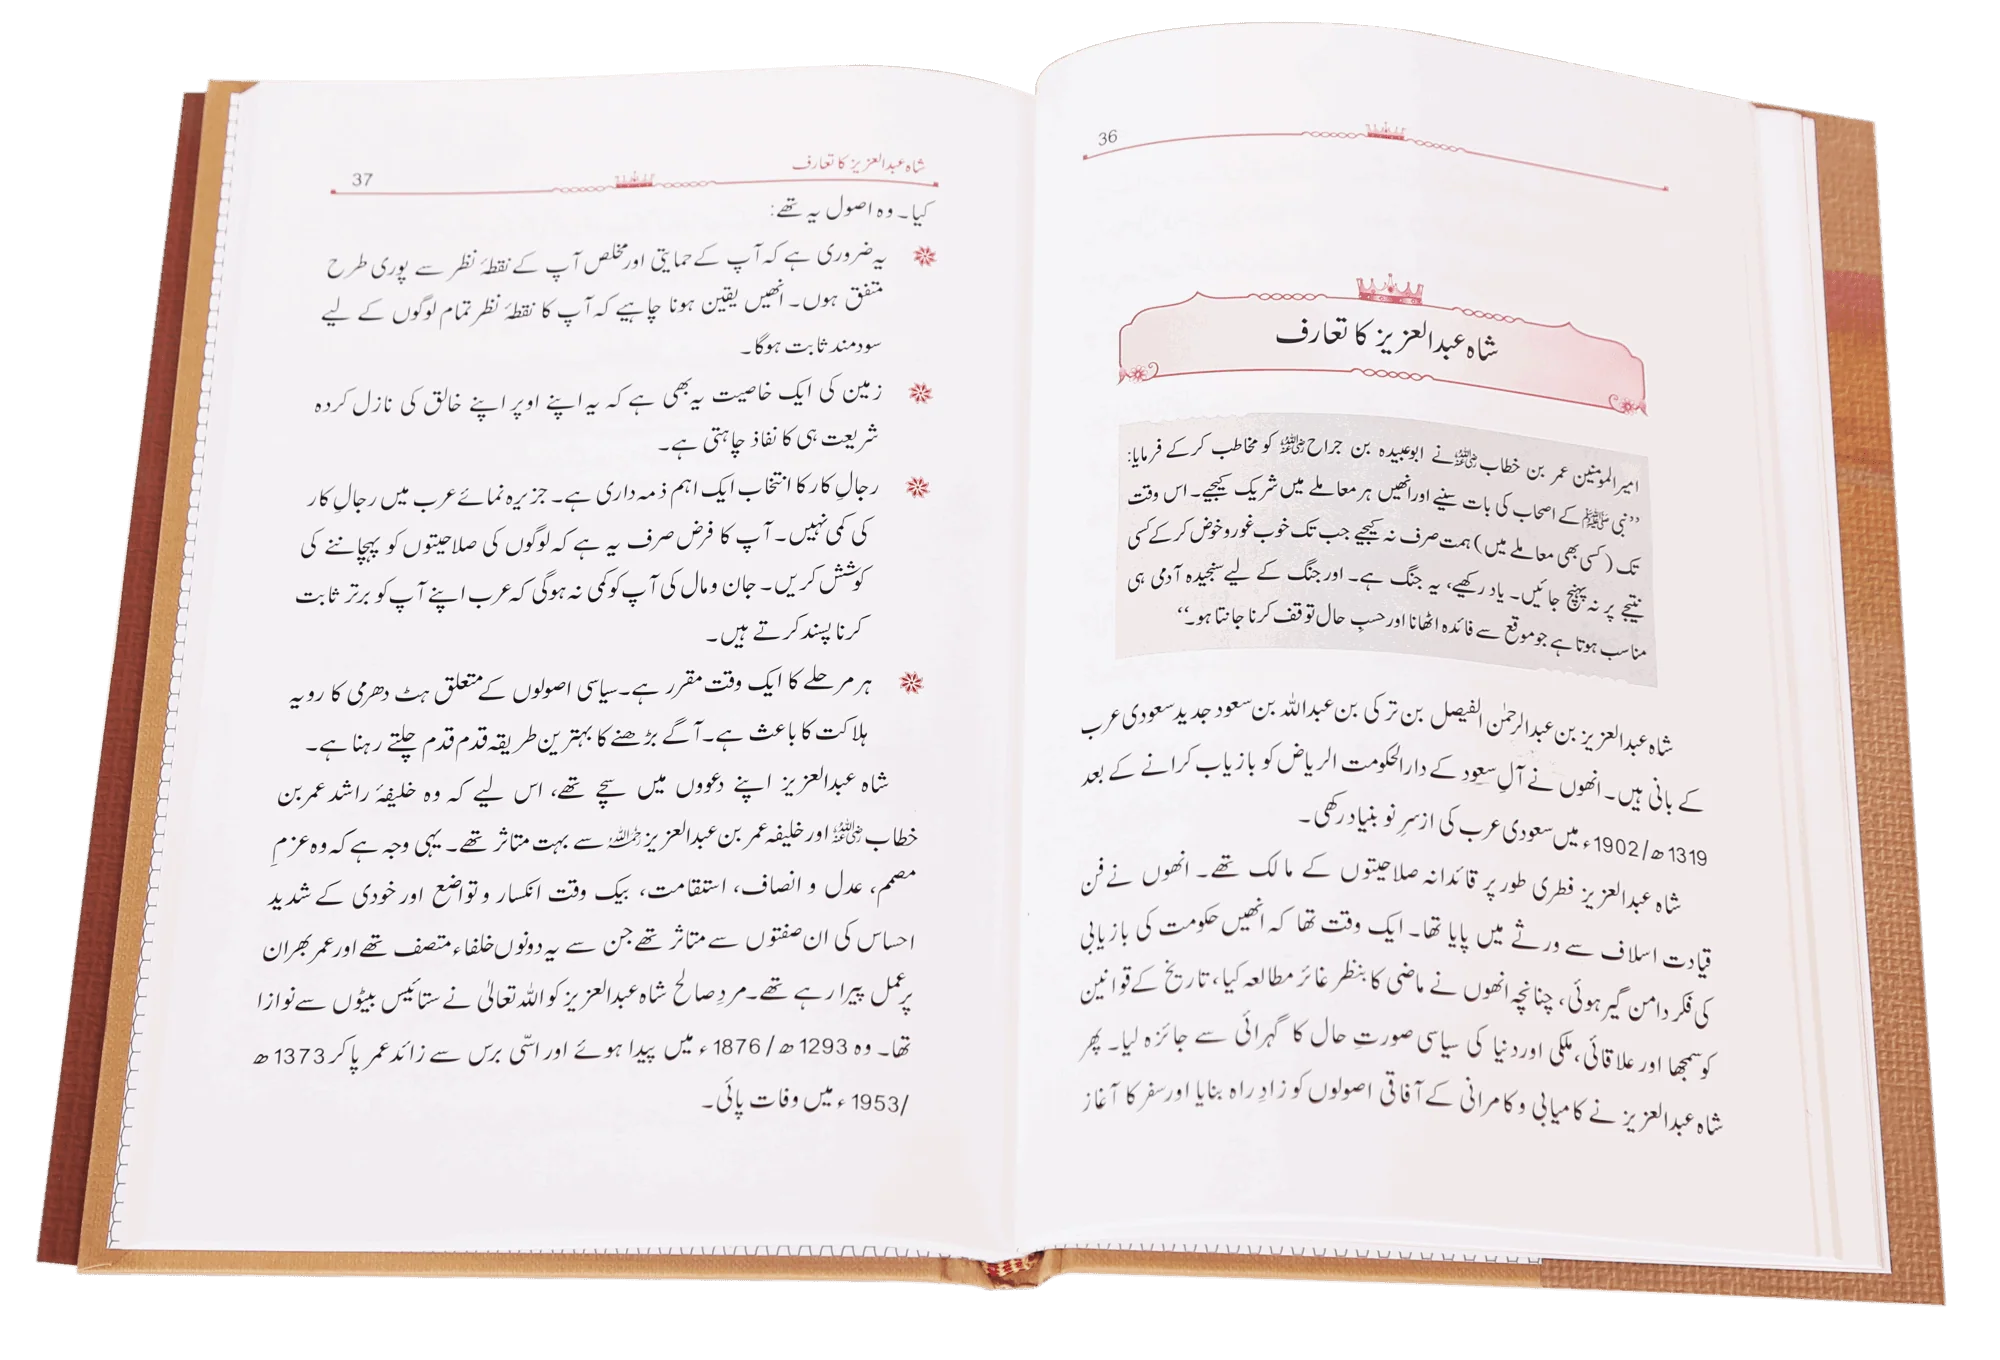 36
شاہ عبدالعزیز کا تعارف
امیرالمومنین عمر بن خطاب رضی اللہ عنہ نے ابوعبیدہ بن جراح رضی اللہ عنہ کو مخاطب کرکے فرمایا:
’’نبی ﷺ کے اصحاب کی بات سنیے اور انھیں ہر معاملے میں شریک کیجیے۔ اس وقت
تک (کسی بھی معاملے میں) ہمت صرف نہ کیجیے جب تک خوب غور و خوض کرکے کسی
نتیجے پر نہ پہنچ جائیں۔ یاد رکھیے، یہ جنگ ہے۔ اور جنگ کے لیے سنجیدہ آدمی ہی
مناسب ہوتا ہے جو موقع سے فائدہ اٹھانا اور حسبِ حال توقف کرنا جانتا ہو۔‘‘
شاہ عبدالعزیز بن عبدالرحمٰن الفیصل بن ترکی بن عبداللہ بن سعود جدید سعودی عرب
کے بانی ہیں۔ انھوں نے آلِ سعود کے دارالحکومت الریاض کو بازیاب کرانے کے بعد
1319ھ/1902ء میں سعودی عرب کی ازسرِ نو بنیاد رکھی۔
شاہ عبدالعزیز فطری طور پر قائدانہ صلاحیتوں کے مالک تھے۔ انھوں نے فن
قیادت اسلاف سے ورثے میں پایا تھا۔ ایک وقت تھا کہ انھیں حکومت کی بازیابی
کی فکر دامن گیر ہوئی، چنانچہ انھوں نے ماضی کا بنظر غائر مطالعہ کیا، تاریخ کے قوانین
کو سمجھا اور علاقائی، ملکی اور دنیا کی سیاسی صورتِ حال کا گہرائی سے جائزہ لیا۔ پھر
شاہ عبدالعزیز نے کامیابی و کامرانی کے آفاقی اصولوں کو زادِ راہ بنایا اور سفر کا آغاز
شاہ عبدالعزیز کا تعارف
37
کیا۔ وہ اصول یہ تھے:
یہ ضروری ہے کہ آپ کے حمایتی اور مخلص آپ کے نقطۂ نظر سے پوری طرح
متفق ہوں۔ انھیں یقین ہونا چاہیے کہ آپ کا نقطۂ نظر تمام لوگوں کے لیے
سودمند ثابت ہوگا۔
زمین کی ایک خاصیت یہ بھی ہے کہ یہ اپنے اوپر اپنے خالق کی نازل کردہ
شریعت ہی کا نفاذ چاہتی ہے۔
رجالِ کار کا انتخاب ایک اہم ذمہ داری ہے۔ جزیرہ نمائے عرب میں رجالِ کار
کی کمی نہیں۔ آپ کا فرض صرف یہ ہے کہ لوگوں کی صلاحیتوں کو پہچاننے کی
کوشش کریں۔ جان و مال کی آپ کو کمی نہ ہوگی کہ عرب اپنے آپ کو برتر ثابت
کرنا پسند کرتے ہیں۔
ہر مرحلے کا ایک وقت مقرر ہے۔ سیاسی اصولوں کے متعلق ہٹ دھرمی کا رویہ
ہلاکت کا باعث ہے۔ آگے بڑھنے کا بہترین طریقہ قدم قدم چلتے رہنا ہے۔
شاہ عبدالعزیز اپنے دعووں میں سچے تھے، اس لیے کہ وہ خلیفۂ راشد عمر بن
خطاب رضی اللہ عنہ اور خلیفہ عمر بن عبدالعزیز رحمہ اللہ سے بہت متاثر تھے۔ یہی وجہ ہے کہ وہ عزمِ
مصمم، عدل و انصاف، استقامت، بیک وقت انکسار و تواضع اور خودی کے شدید
احساس کی ان صفتوں سے متاثر تھے جن سے یہ دونوں خلفاء متصف تھے اور عمر بھر ان
پر عمل پیرا رہے تھے۔ مردِ صالح شاہ عبدالعزیز کو اللہ تعالیٰ نے ستائیس بیٹوں سے نوازا
تھا۔ وہ 1293ھ/1876ء میں پیدا ہوئے اور اسّی برس سے زائد عمر پا کر 1373ھ
/1953ء میں وفات پائی۔